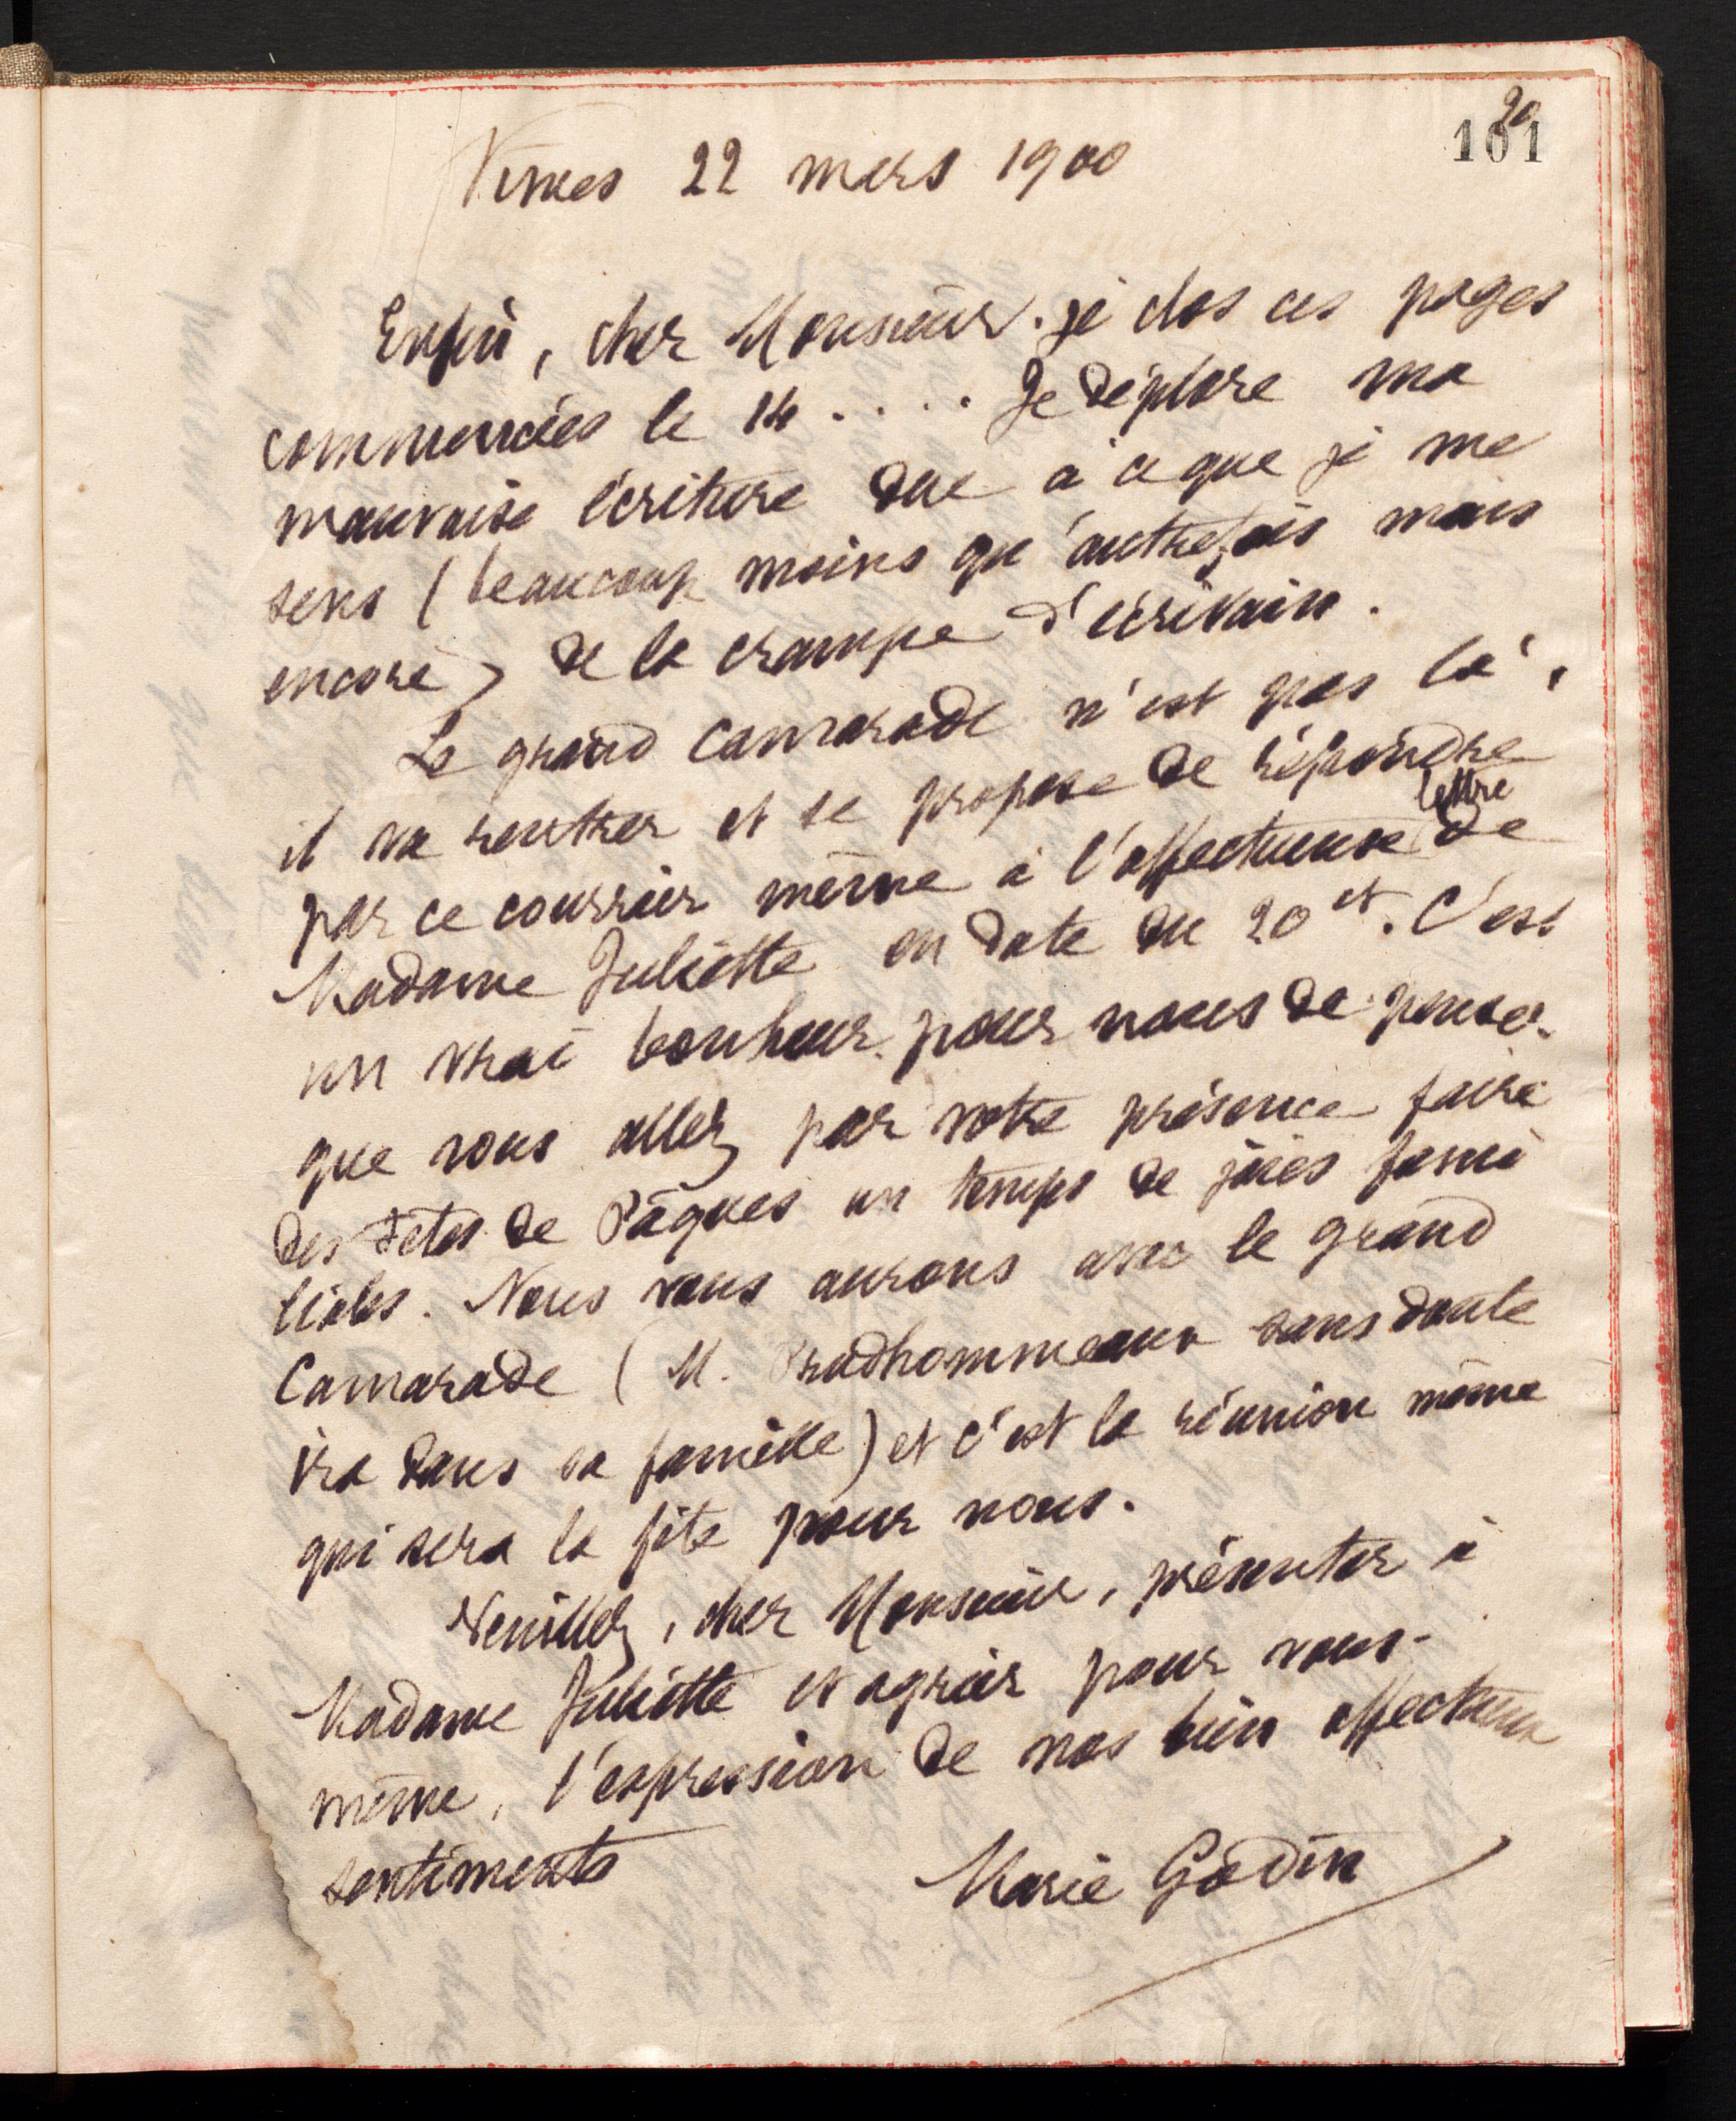 20
101
Nîmes 22 mars 1900
Enfin, cher Monsieur, je clos ces pages
commencées le 14.... Je déplore ma
mauvaise écriture due à ce que je me
sens (beaucoup moins qu'autrefois mais
encore) de la crampe d'écrivain.
Le grand camarade n'est pas là,
il va rentrer et se propose de répondre
par ce courrier même à l'affectueuse lettre de
Madame Juliette en date du 20 ct. C'est
un vrai bonheur pour nous de penser
que vous allez par votre présence faire
des fêtes de Pâques un temps de joies fami
liales. Nous vous aurons avec le grand
Camarade (M. Prudhommeaux sans doute
ira dans sa famille) et c'est la réunion même
qui sera la fête pour nous.
Veuillez, cher Monsieur, présenter à
Madame Juliette et agréer pour vous-
même, l'expression de nos bien affectueux
sentiments
Marie Godin